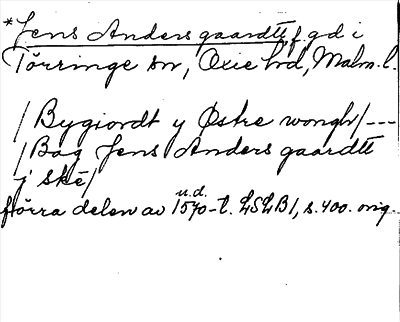 *Jens Anders gaardtt, f. gd i
Törringe sn, Oxie hd, Malm. l.
/Bygiordt y Østre wongh/---
/Bag Jens Anders gaardtt
j ske/
förra delen av 1570-t. LSLB1, s. 400. orig.
u.d.